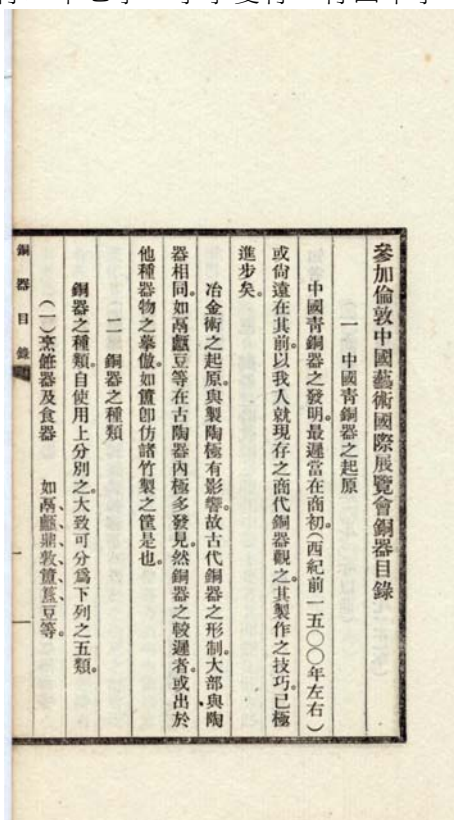 參加倫敦中國藝術國際展覽會銅器目錄
一 中國青銅器之起原
中國青銅器之發明。最遲當在商初(西紀前一五〇〇年左右)
或尙遠在其前。以我人就現存之商代銅器觀之。其製作之技巧。已極
進步矣。
冶金術之起原。與製陶極有影響。故古代銅器之形制。大部與陶
器相同。如鬲甗豆等。在古陶器內極多發見。然銅器之較遲者。或出於
他種器物之摹倣。如簠卽仿諸竹製之筐是也。
二 銅器之種類
銅器之種類。自使用上分別之。大致可分爲下列之五類。
(一)烹飪器及食器 如鬲、甗、鼎、敦、簠、簋、豆等。
銅器目錄
一